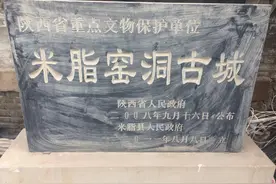 陕西省重点文物保护单位
米脂窑洞古城
陕西省人民政府
二〇〇八年九月十六日公布
米脂县人民政府
年八月八日